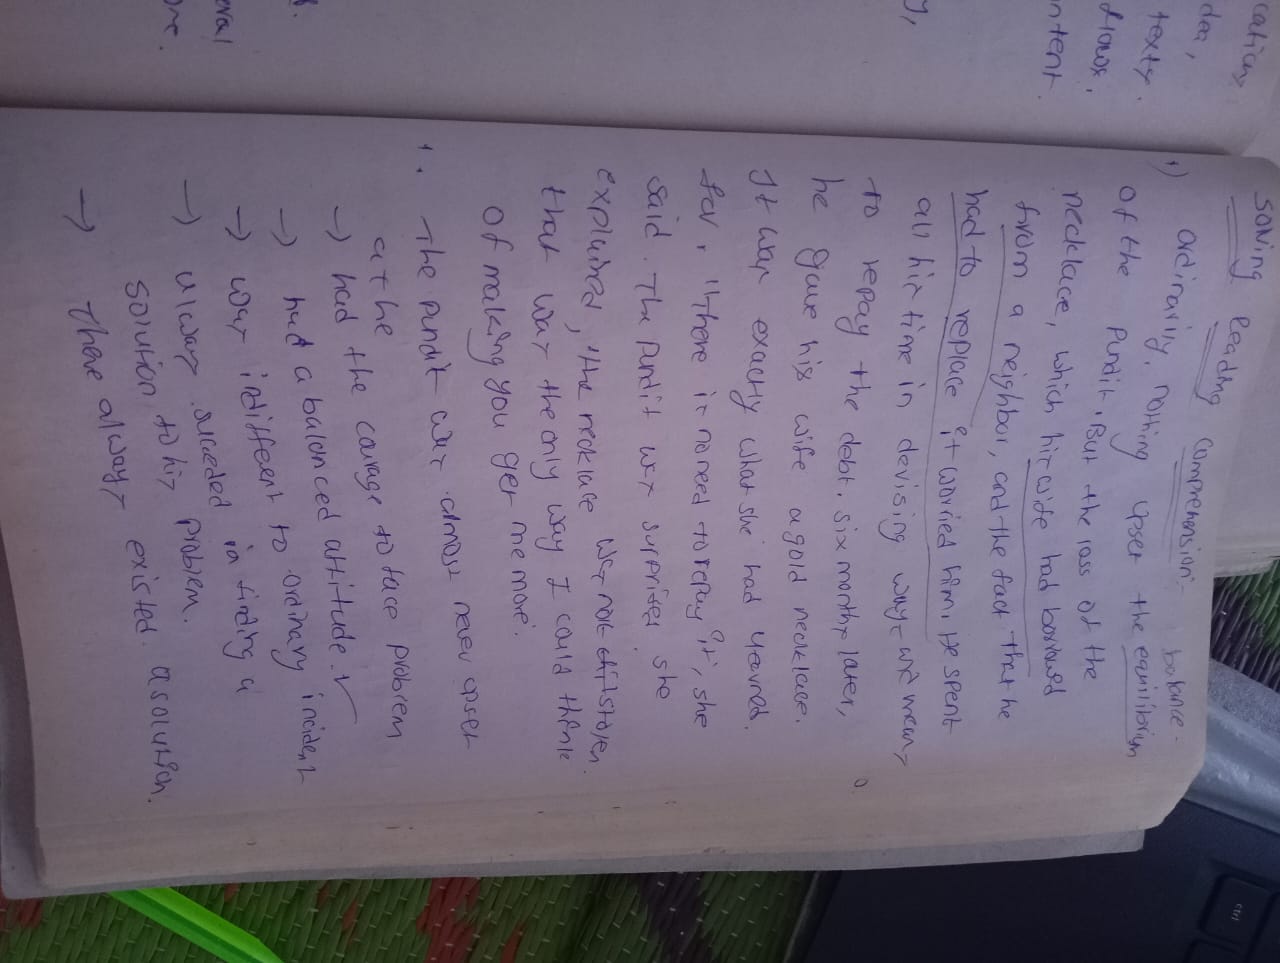 Solving Reading Comprehension:-
balance-
1) Ordinarily, nothing upset the equilibrium
of the Pundit. But the loss of the
necklace, which his wife had borrowed
from a neighbor, and the fact that he
had to replace it worried him. He spent
all his time in devising ways and means
to repay the debt. Six months later,
he gave his wife a gold necklace.
It was exactly what she had yearned
for. "There is no need to repay it", she
said. The pundit was surprised. She
explained, "the necklace was not stolen.
that was the only way I could think
of making you get me more".
1. The pundit was almost never upset
as he
→ had the courage to face problem
→ had a balanced attitude ✓
→ was indifferent to ordinary incident
→ always succeded in finding a
solution to his problem.
→ There always existed a solution.
cations
dea,
texts.
intent.
y,
eral
one.
ctrl